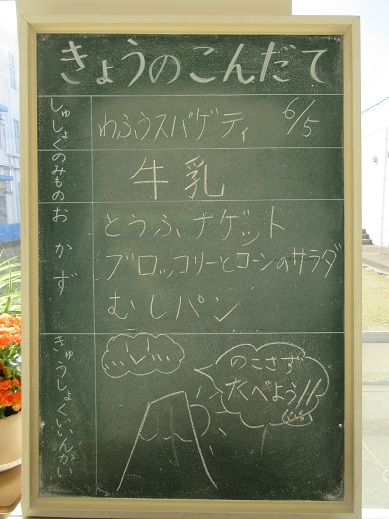 きょうのこんだて
しゅしょく
わふうスパゲティ 6/5
のみもの
牛乳
おかず
とうふナゲット
ブロッコリーとコーンのサラダ
むしパン
きゅうしょくいいんかい
のこさず
たべよう!!